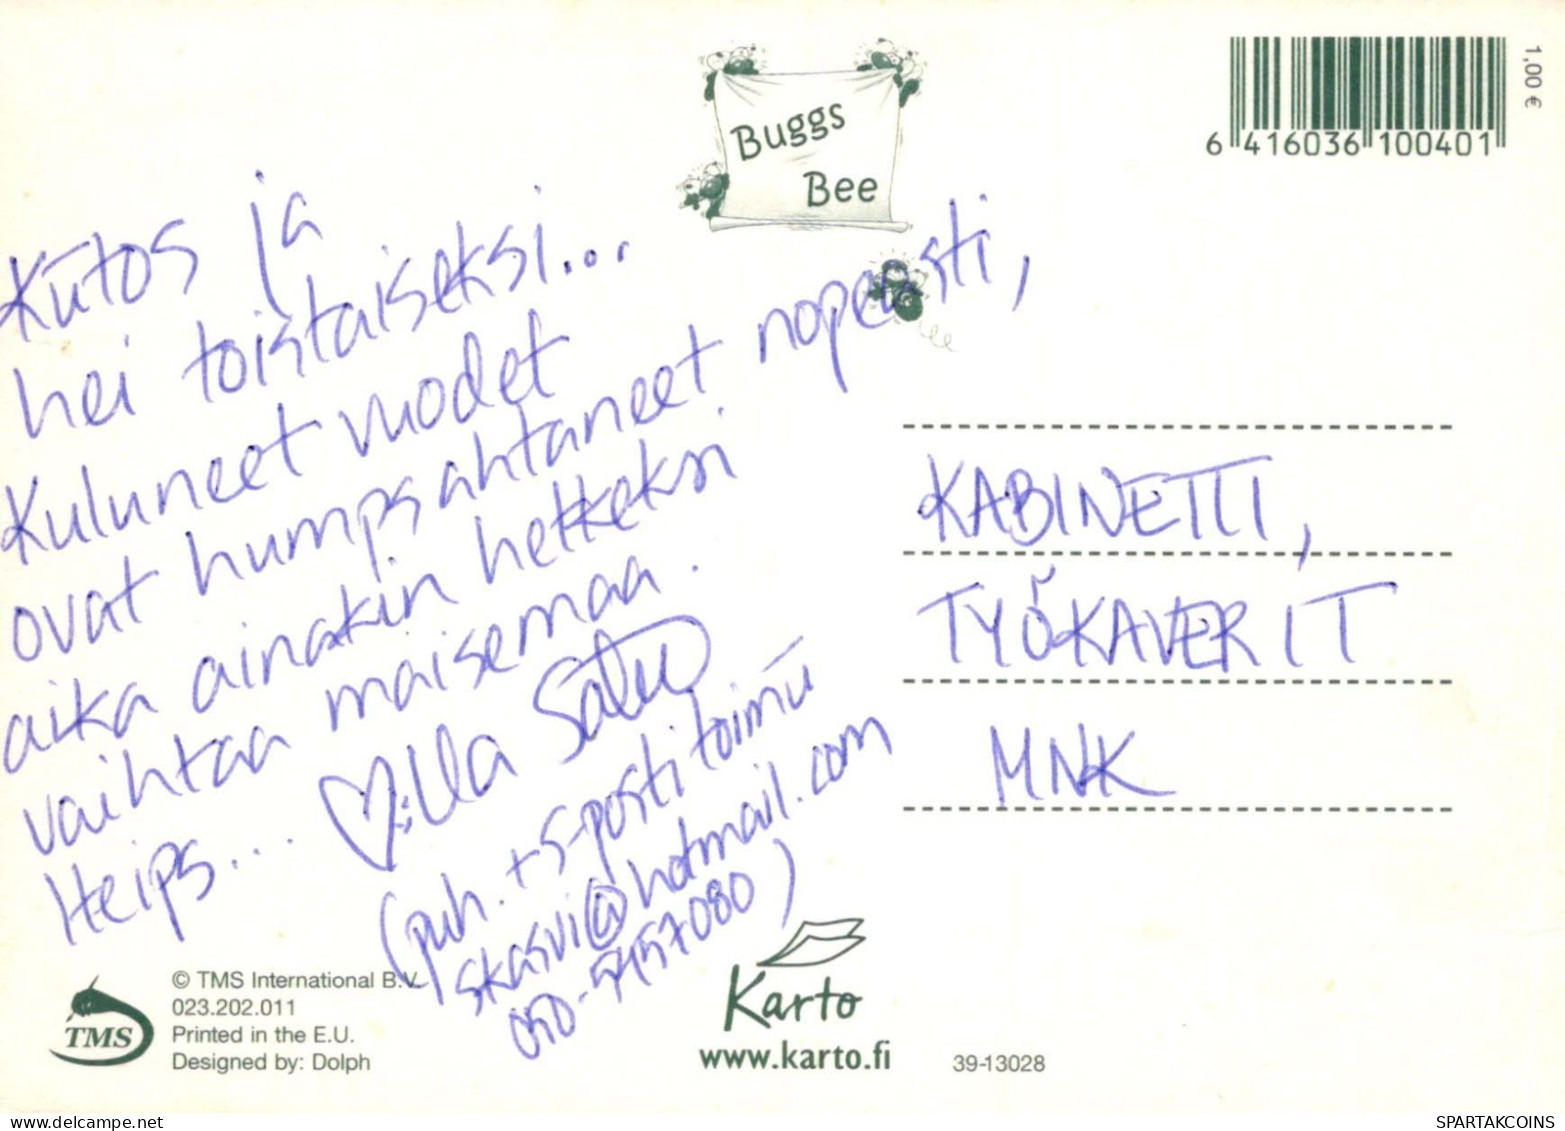 Buggs
Bee
6 416036 100401
1,00 €
Kiitos ja
hei toistaiseksi...
Kuluneet vuodet
ovat humpsahtaneet nopeasti,
aika ainakin hetkeksi
vaihtaa maisemaa.
Heips... ♡:lla Satu
(puh. + s-posti toimii
skasvi@hotmail.com
KABINETTI,
TYÖKAVERIT
MNK
© TMS International B.V.
023.202.011
Printed in the E.U.
Designed by: Dolph
TMS
Karto
www.karto.fi
39-13028
SPARTAKCOINS